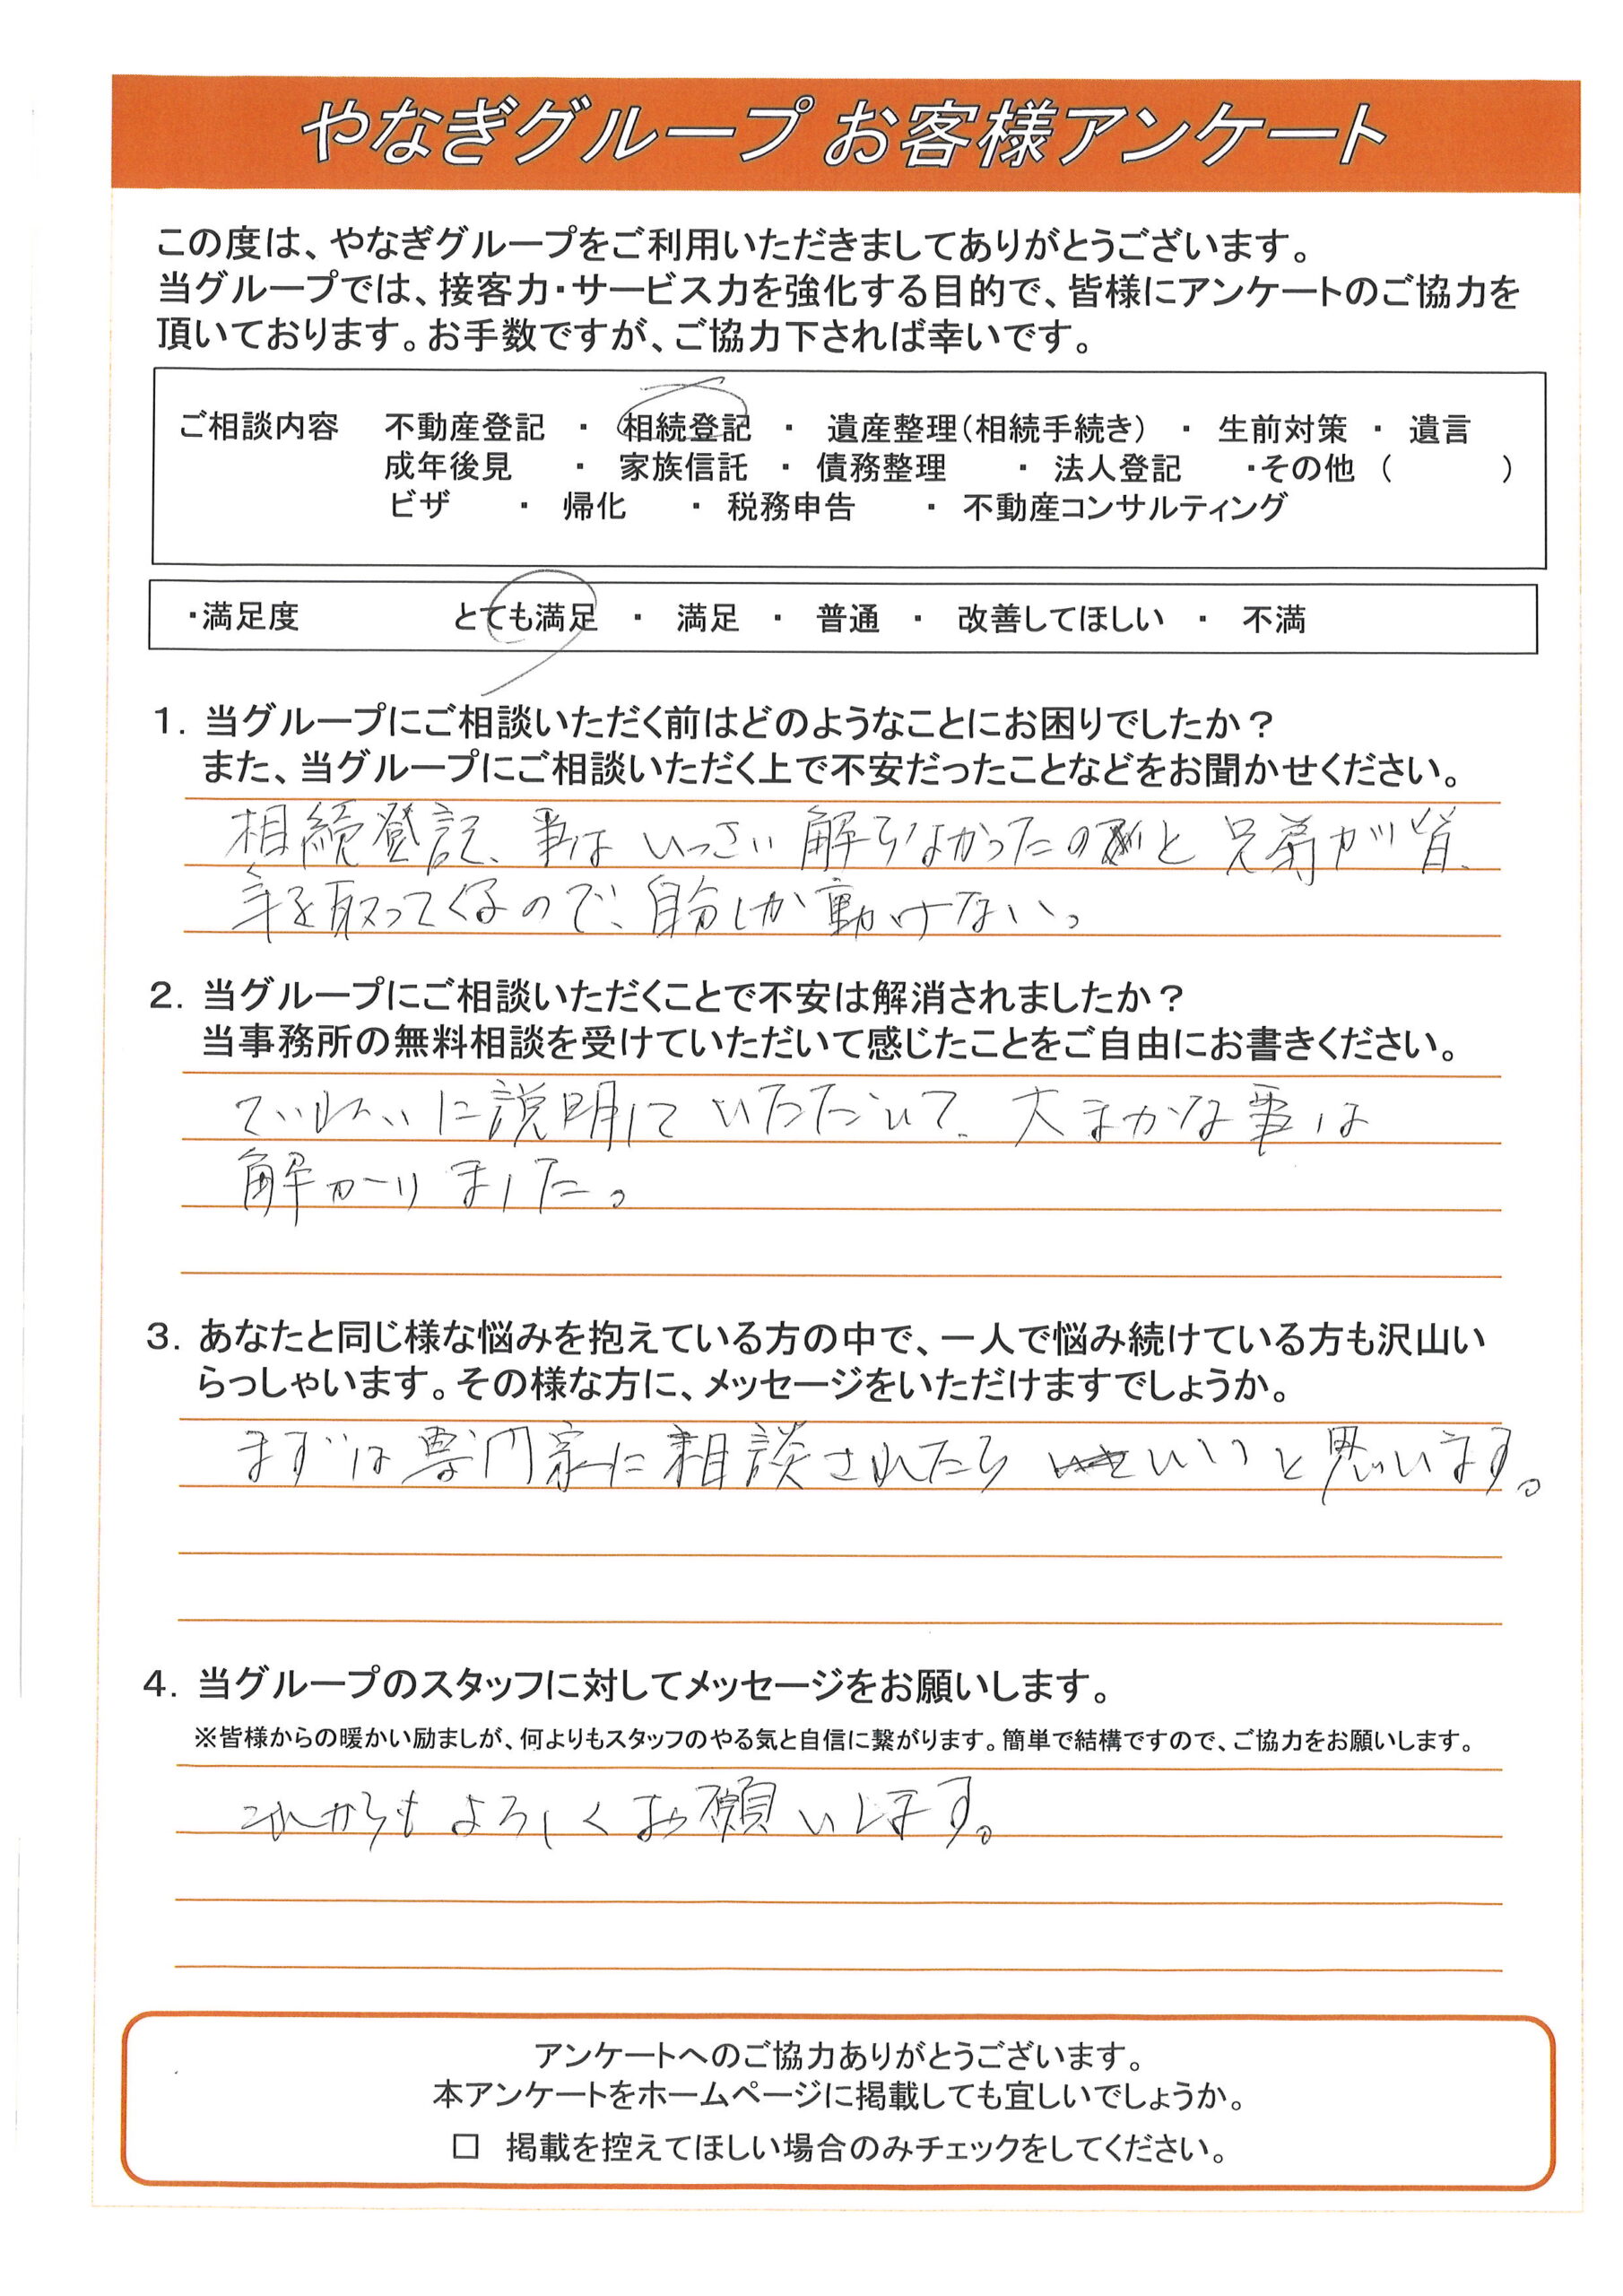 やなぎグループ お客様アンケート
この度は、やなぎグループをご利用いただきましてありがとうございます。
当グループでは、接客力・サービス力を強化する目的で、皆様にアンケートのご協力を
頂いております。お手数ですが、ご協力下されば幸いです。
ご相談内容 不動産登記 ・ 相続登記 ・ 遺産整理(相続手続き) ・ 生前対策 ・ 遺言
成年後見 ・ 家族信託 ・ 債務整理 ・ 法人登記 ・その他 ( )
ビザ ・ 帰化 ・ 税務申告 ・ 不動産コンサルティング
・満足度 とても満足 ・ 満足 ・ 普通 ・ 改善してほしい ・ 不満
1. 当グループにご相談いただく前はどのようなことにお困りでしたか？
また、当グループにご相談いただく上で不安だったことなどをお聞かせください。
相続登記、事はいっさい解らなかったのと兄弟が皆、
年を取ってくるので、自分しか動けない。
2. 当グループにご相談いただくことで不安は解消されましたか？
当事務所の無料相談を受けていただいて感じたことをご自由にお書きください。
ていねいに説明していただいて、大まかな事は
解かりました。
3. あなたと同じ様な悩みを抱えている方の中で、一人で悩み続けている方も沢山い
らっしゃいます。その様な方に、メッセージをいただけますでしょうか。
まずは専門家に相談されたらいいと思います。
4. 当グループのスタッフに対してメッセージをお願いします。
※皆様からの暖かい励ましが、何よりもスタッフのやる気と自信に繋がります。簡単で結構ですので、ご協力をお願いします。
これからもよろしくお願いします。
アンケートへのご協力ありがとうございます。
本アンケートをホームページに掲載しても宜しいでしょうか。
□ 掲載を控えてほしい場合のみチェックをしてください。